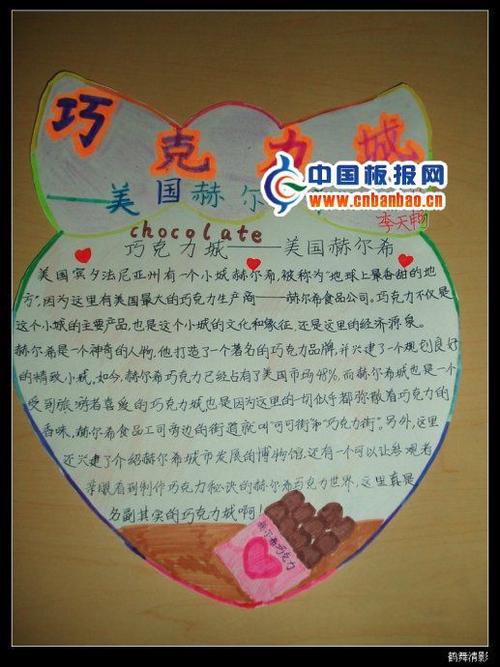 巧克力城
中国板报网
www.cnbanbao.cn
美国赫尔
李天畅
chocolate
巧克力城——美国赫尔希
美国宾夕法尼亚州有一个小城赫尔希,被称为"地球上最香甜的地
方",因为这里有美国最大的巧克力生产商——赫尔希食品公司。巧克力不仅是
这个小城的主要产品,也是这个小城的文化和象征,还是这里的经济源泉。
赫尔希是一个神奇的人物,他打造了一个著名的巧克力品牌,并兴建了一个规划良好
的精致小城。如今,赫尔希巧克力已经占有了美国市场48%,而赫尔希城也是一个
受到旅游者喜爱的巧克力城也是因为这里的一切似乎都弥散着巧克力的
香味,赫尔希食品工司旁边的街道就叫"可可街"第"巧克力街"。另外,这里
还兴建了介绍赫尔希城市发展的博物馆,还有一个可以让参观者
亲眼看到制作巧克力秘诀的赫尔希巧克力世界,这里真是
名副其实的巧克力城啊!
赫尔希巧克力
鹤舞清影